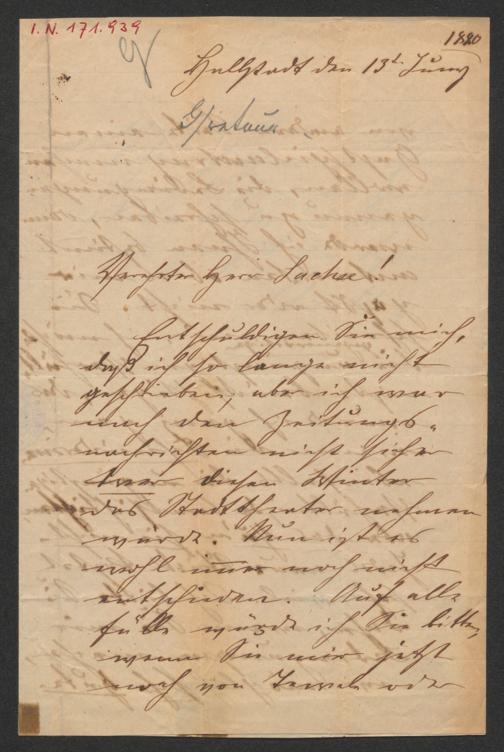 I. N. 171.939
1880
Hallstadt den 13t. Juny
G/retour
Verehrter Herr Sachse!
Entschuldigen Sie mich,
daß ich so lange nicht
geschrieben, aber ich war
nach den Zeitungs-
nachrichten nicht sicher
wer diesen Winter
das Stadttheater nehmen
würde. Nun ist es
wohl immer noch nicht
entschieden. Auf alle
Fälle würde ich Sie bitten,
wenn Sie mir jetzt
noch von oder